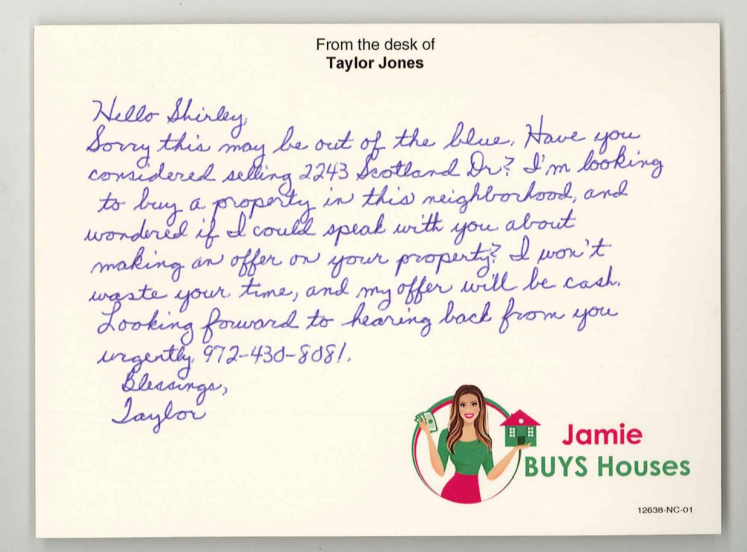 From the desk of
Taylor Jones
Hello Shirley,
Sorry this may be out of the blue. Have you
considered selling 2243 Scotland Dr? I'm looking
to buy a property in this neighborhood, and
wondered if I could speak with you about
making an offer on your property? I won't
waste your time, and my offer will be cash.
Looking forward to hearing back from you
urgently. 972-430-8081.
Blessings,
Taylor
Jamie
BUYS Houses
12638-NC-01